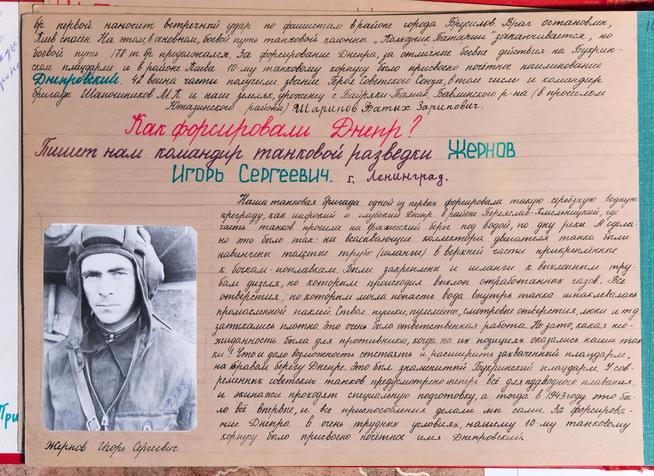 бр первой наносит встречный удар по фашистам в районе города Брусилов. Враг остановлен,
Киев спасен. На этом, в основном, боевой путь танковой колонны „Колхозник Татарии" заканчивается, но
боевой путь 178 тп бр. продолжался. За форсирование Днепра, за отличные боевые действия на Букрин-
ском плацдарме и в районе Киева 10-му танковому корпусу было присвоено почётное наименование
Днепровский. 42 воина части получили звание Героя Советского Союза, в том числе и командир
бригады Шапошников М.К. и наш земляк, уроженец с. Байряки-Тамак, Бавлинского р-на (в прошлом
Ютазинского района) Шарипов Фатых Зарипович.
Как форсировали Днепр?
Пишет нам командир танковой разведки Жернов
Игорь Сергеевич. г. Ленинград.
Наша танковая бригада одной из первых форсировала такую серьёзную водную
преграду, как широкий и глубокий Днепр в районе Переяслав-Хмельницкий, где
часть танков прошла на вражеский берег под водой, по дну реки. А сдела-
но это было так: на всасывающие коллектора двигателя танка были
навинчены толстые трубы (шланги) в верхней части прикреплённые
к бочкам-поплавкам. Были закреплены и шланги к выхлопным тру-
бам дизеля, по которым происходил выхлоп отработанных газов. Все
отверстия, по которым могла попасть вода внутрь танка шпаклевалась
промасленной паклей. Ствол пушки, пулемёты, смотровые отверстия, люки и т.д
затыкались плотно. Это очень была ответственная работа. Но зато, какая нео-
жиданность была для противника, когда на их позициях оказались наши тан-
ки! Что и дало возможность отстоять и расширить захваченный плацдарм
на правом берегу Днепра. Это был знаменитый Букринский плацдарм. У сов-
ременных советских танков предусмотрено теперь всё для подводного плавания
и экипажи проходят специальную подготовку, а тогда в 1943 году это бы-
ло всё впервые, и все приспособления делали мы сами. За форсирова-
ние Днепра в очень трудных условиях, нашему 10 му танковому
корпусу было присвоено почётное имя Днепровский.
Жернов Игорь Сергеевич
При